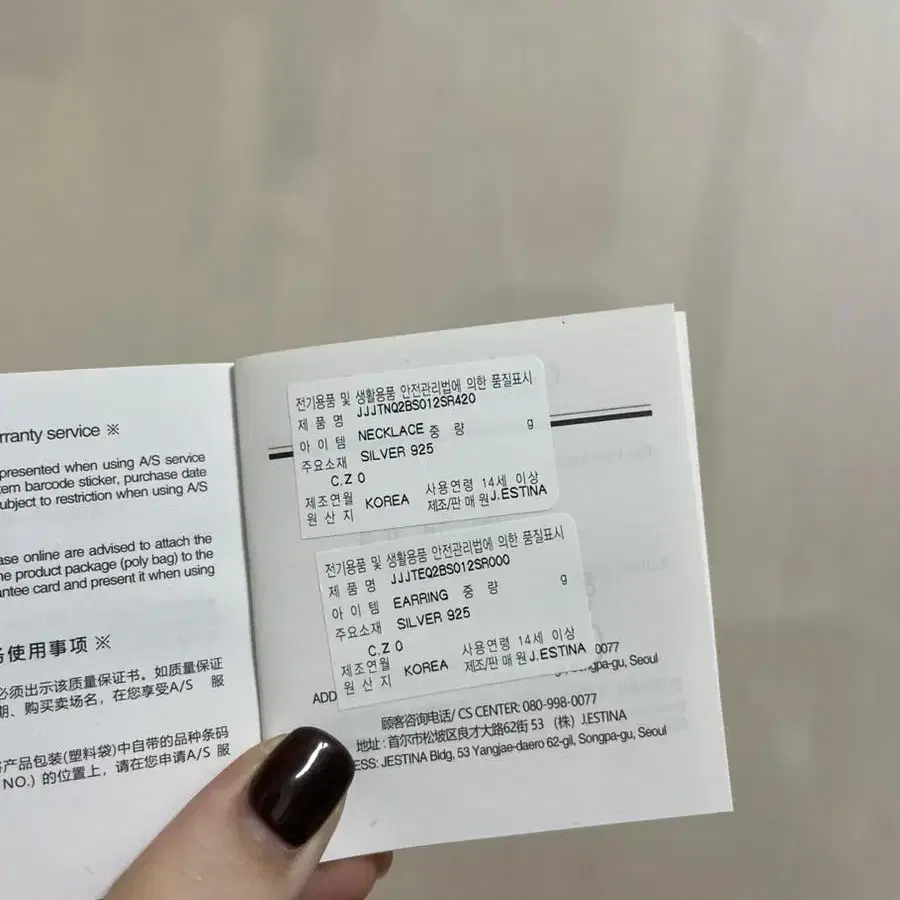 rranty service ※
presented when using A/S service
tem barcode sticker, purchase date
ubject to restriction when using A/S
ase online are advised to attach the
he product package (poly bag) to the
antee card and present it when using
使用事项 ※
必须出示该质量保证书。如质量保证
期、购买卖场名，在您享受A/S 服
产品包装(塑料袋)中自带的品种条码
NO.) 的位置上，请在您申请A/S 服
전기용품 및 생활용품 안전관리법에 의한 품질표시
제 품 명 JJJTNQ2BS012SR420
아 이 템 NECKLACE 중 량 g
주요소재 SILVER 925
C.Z 0
제조연월 사용연령 14세 이상
원 산 지 KOREA 제조/판 매 원 J.ESTINA
전기용품 및 생활용품 안전관리법에 의한 품질표시
제 품 명 JJJTEQ2BS012SR000
아 이 템 EARRING 중 량 g
주요소재 SILVER 925
C.Z 0
제조연월 사용연령 14세 이상
원 산 지 KOREA 제조/판 매 원 J.ESTINA
0077
ADD ngpa-gu, Seoul
顾客咨询电话/ CS CENTER: 080-998-0077
地址 : 首尔市松坡区良才大路62街 53 （株）J.ESTINA
ESS: JESTINA Bldg, 53 Yangjae-daero 62-gil, Songpa-gu, Seoul